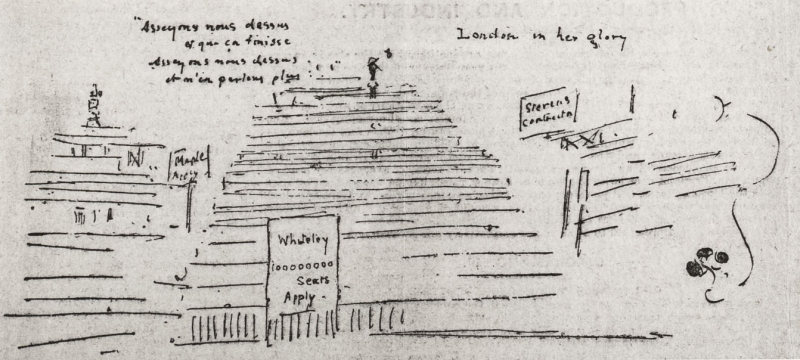 "Asseyons nous dessus
et que ça finisse
Asseyons nous dessus
et n'en parlons plus "
London in her glory
Maple
Stevens
Contractor
Whiteley
Seats
Apply -